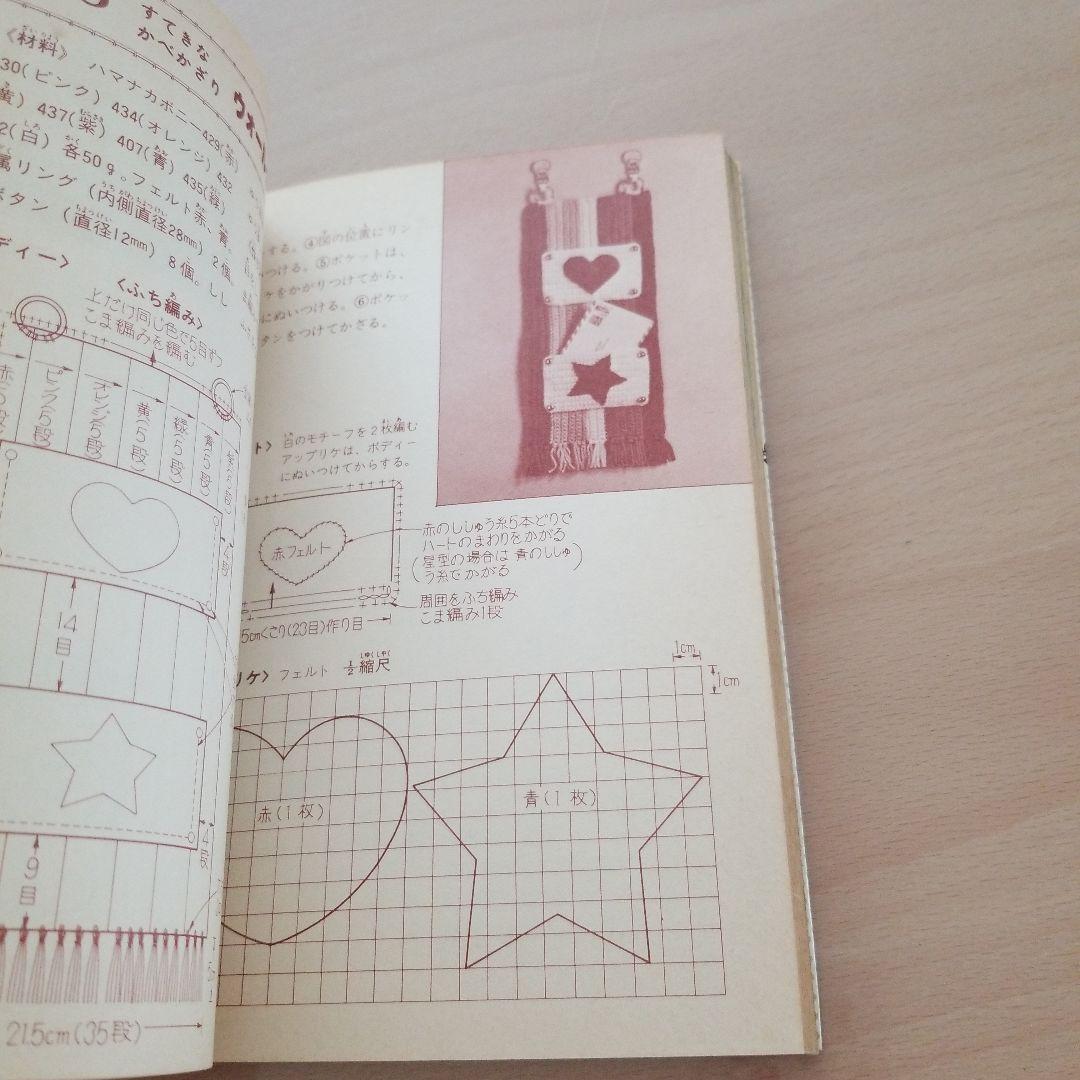 すてきな
かべかざり
ウォー
《材料》 ハマナカボニー429(赤)
30(ピンク) 434(オレンジ) 432
黄) 437(紫) 407(青) 435(緑)
2(白) 各50g。フェルト赤、青。
属リング (内側直径28mm) 2個。
ボタン (直径12mm) 8個。しし
ディー〉
〈ふち編み〉
上だけ同じ色で5目ずつ
こま編みを編む
赤(5段)
ピンク(5段)
オレンジ(5段)
黄(5段)
緑(5段)
青(5段)
4段
14目
4段
9目
21.5cm(35段)
する。④図の位置にリン
つける。⑤ポケットは、
ケをかがりつけてから、
にぬいつける。⑥ポケッ
タンをつけてかざる。
ト〉 白のモチーフを2枚編む
アップリケは、ボディー
にぬいつけてからする。
赤フェルト
赤のししゅう糸5本どりで
ハートのまわりをかがる
(星型の場合は 青のししゅ
う糸でかがる)
周囲をふち編み
こま編み1段
5cmくさり(23目)作り目
リケ〉 フェルト ½縮尺
1cm
1cm
赤(1枚)
青(1枚)